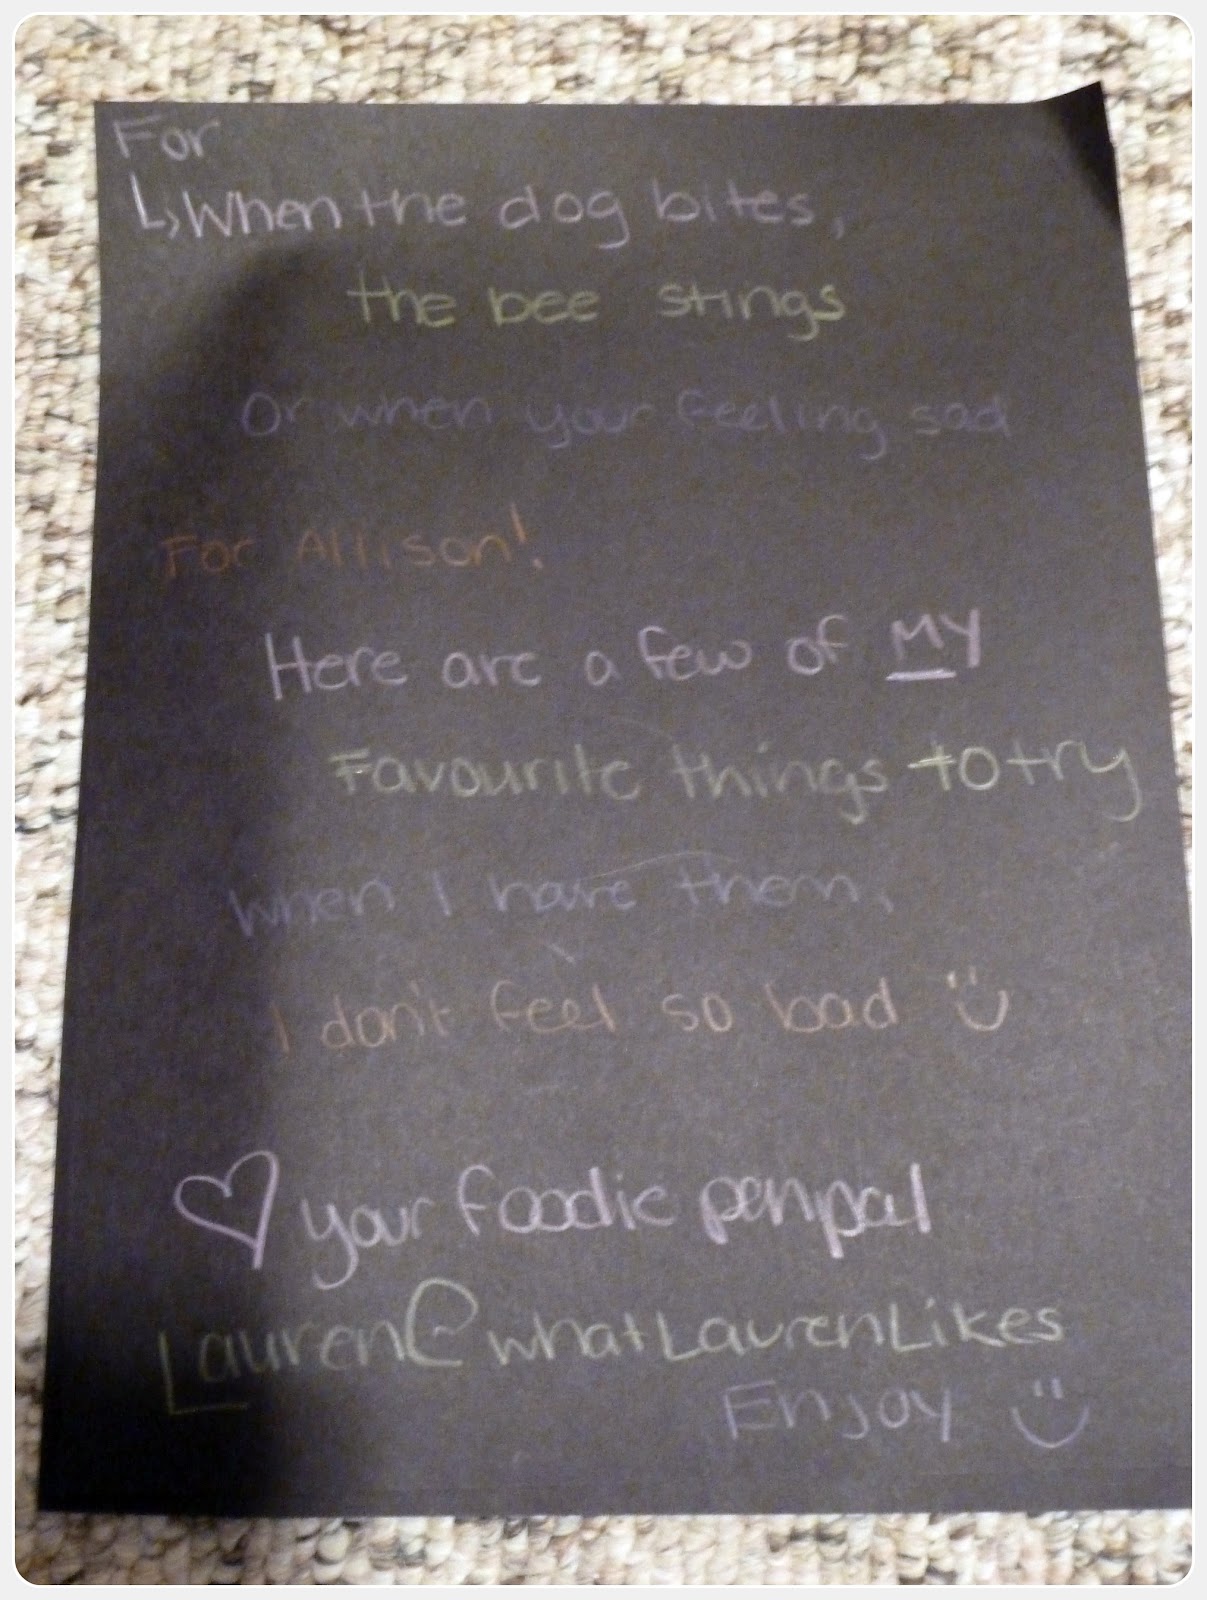 For
↳ When the dog bites,
the bee stings
Or when your feeling sad
For Allison!
Here are a few of MY
Favourite things to try
when I have them,
I don't feel so bad
♡ your foodie penpal
Lauren@whatLaurenLikes
Enjoy